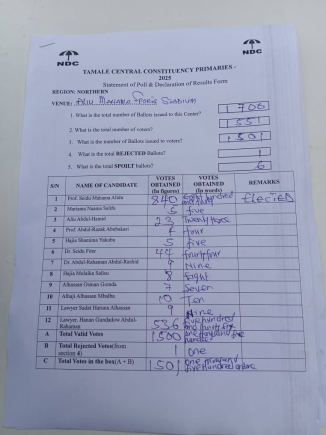 NDC
NDC
TAMALE CENTRAL CONSTITUENCY PRIMARIES -
2025
Statement of Poll & Declaration of Results Form
REGION: NORTHERN
VENUE: Aliu Mahama Sports Stadium
1. What is the total number of Ballots issued to this Center? 1706
2. What is the total number of voters? 1551
3. What is the number of Ballots issued to voters? 1501
4. What is the total REJECTED Ballots? 1
5. What is the total SPOILT ballots? 6
S/N NAME OF CANDIDATE VOTES OBTAINED (In figures) VOTES OBTAINED (In words) REMARKS
1 Prof. Seidu Alidu 840 eight hundred and forty Elected
2 5 five
3 Aliu Abdul-Hamid 23 Twenty three
4 Prof. Abdul-Razak Abubakari 4 four
5 Hajia Shamima Yakubu 5 five
6 Dr. Seidu Fiter 44 fourty four
7 Dr. Abdul-Rahaman Abdul-Rashid 9 Nine
8 Hajia Molaika Salisu 8 Eight
9 Alhassan Osman Gomda 7 Seven
10 Alhaji Alhassan Mbalba 10 Ten
11 Lawyer Sadat Haruna Alhassan 9 Nine
12 Lawyer. Hanan Gundadow Abdul-Rahaman 536 five hundred and thirty six
A Total Valid Votes 1500 one thousand five hundred
B Total Rejected Votes(from section 4) 1 one
C Total Votes in the box(A + B) 1501 one thousand five hundred and one